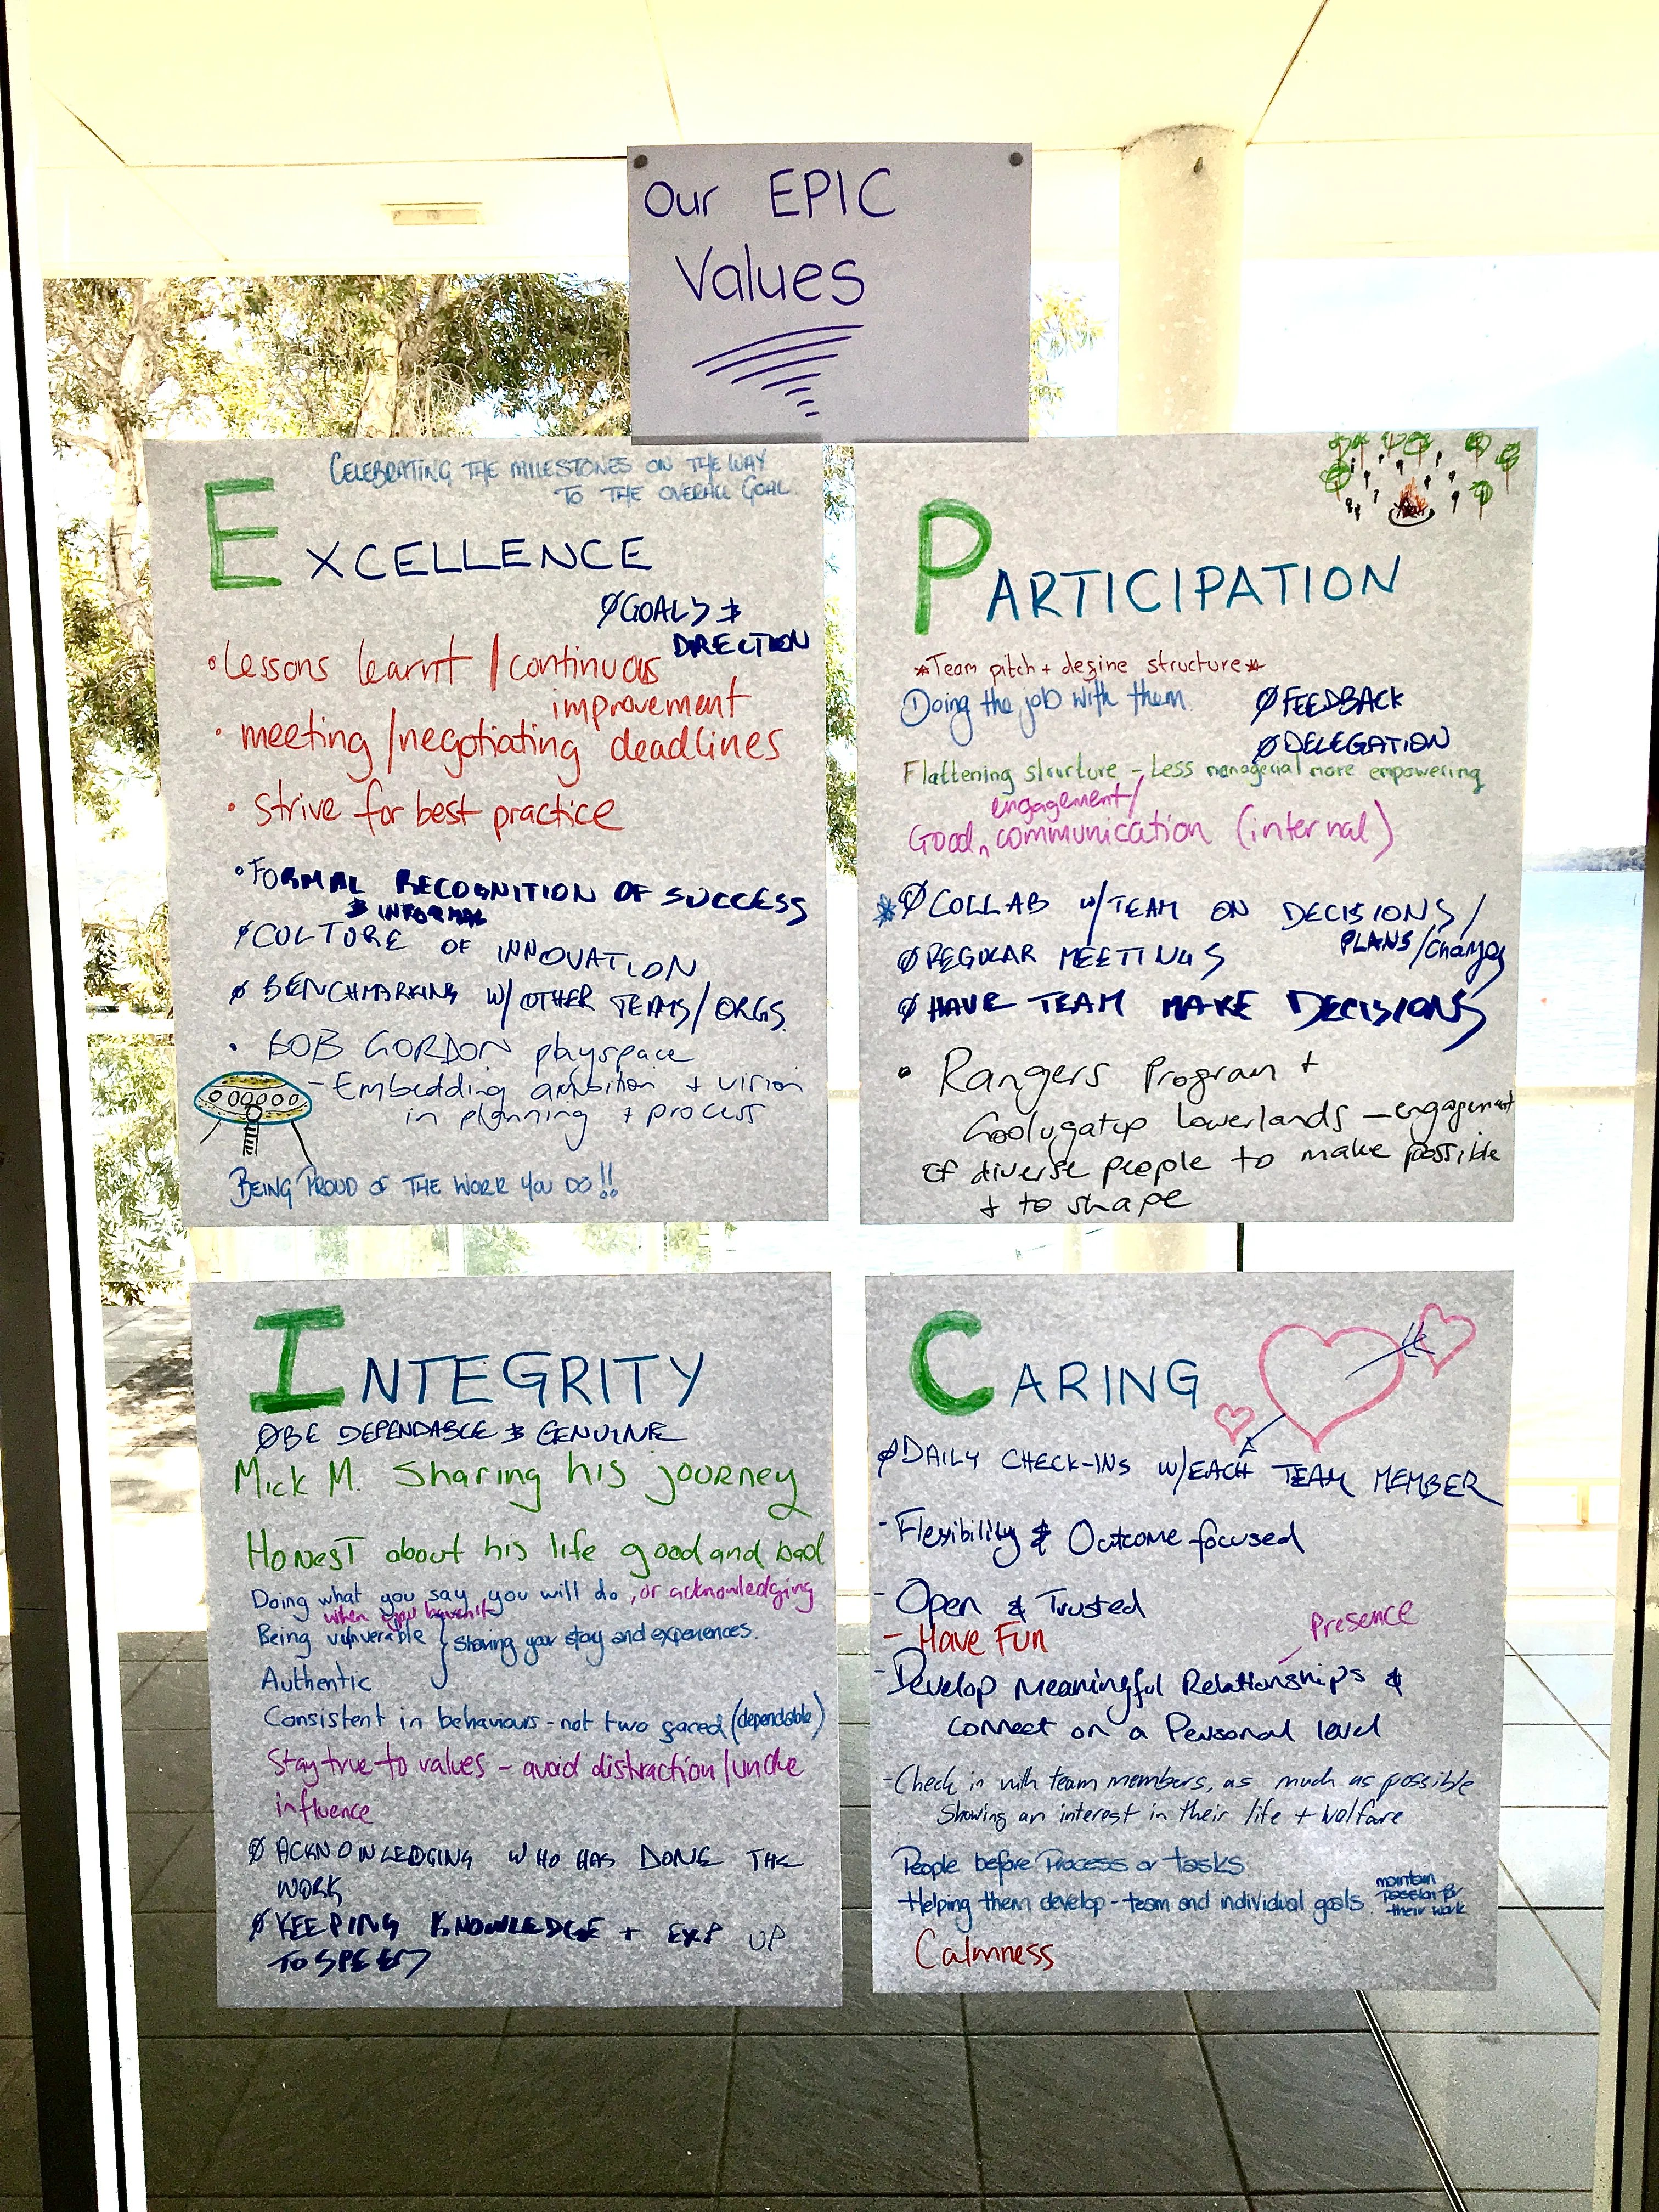 Our EPIC
Values
CELEBRATING THE MILESTONES ON THE WAY
TO THE OVERALL GOAL
EXCELLENCE
GOALS &
DIRECTION
• Lessons learnt / continuous
improvement
• meeting / negotiating deadlines
• strive for best practice
• FORMAL RECOGNITION OF SUCCESS
& INFORMAL
CULTURE OF INNOVATION
BENCHMARKING W/ OTHER TEAMS / ORGS.
• BOB GORDON playspace
- Embedding ambition + vision
in planning + process
BEING PROUD OF THE WORK YOU DO!!
PARTICIPATION
*Team pitch + desine structure*
Doing the job with them.
FEEDBACK
DELEGATION
Flattening structure - Less managerial more empowering
engagement/
Good communication (internal)
* COLLAB W/ TEAM ON DECISIONS /
PLANS / Changes
REGULAR MEETINGS
HAVE TEAM MAKE DECISIONS
• Rangers Program +
Goolugatup Lowerlands - engagement
of diverse people to make possible
+ to shape
INTEGRITY
BE DEPENDABLE & GENUINE
Mick M. Sharing his journey
Honest about his life good and bad
Doing what you say you will do, or acknowledging
when you haven't
Being vulnerable } Sharing your stoy and experiences.
Authentic
Consistent in behaviours - not two faced (dependable)
Stay true to values - avoid distraction / undue
influence
ACKNOWLEDGING WHO HAS DONE THE
WORK
KEEPING KNOWLEDGE + EXP UP
TO SPEED
CARING
DAILY CHECK-INS W/ EACH TEAM MEMBER
- Flexibility & Outcome focused
- Open & Trusted
- Have Fun
Presence
- Develop Meaningful Relationships &
connect on a Personal level
- Check in with team members, as much as possible
Showing an interest in their life + welfare
People before Process or tasks
Helping them develop - team and individual goals.
maintain
passion for
their work
Calmness